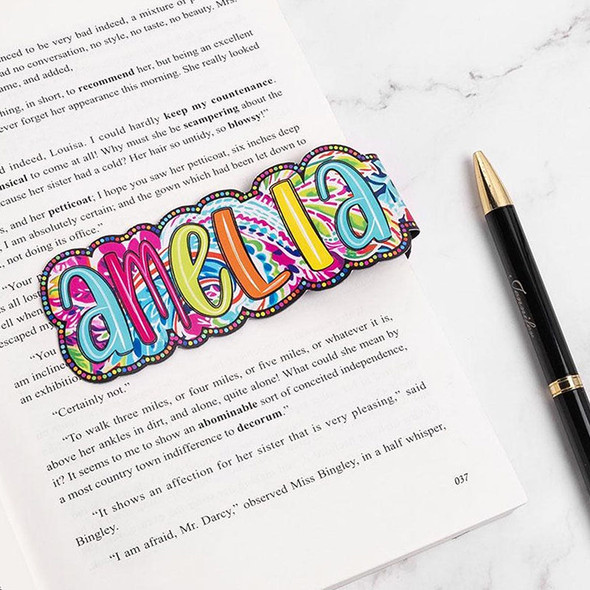 nced to be very bad indeed, a mixture of
ad no conversation, no style, no taste, no beauty. Mrs.
ame, and added,
hing, in short, to recommend her, but being an excellent
ever forget her appearance this morning. She really looked
d indeed, Louisa. I could hardly keep my countenance.
nsical to come at all! Why must she be scampering about the
ecause her sister had a cold? Her hair so untidy, so blowsy!"
, and her petticoat; I hope you saw her petticoat, six inches deep
I am absolutely certain; and the gown which had been let down to
, not doing its office."
"Your
is all lost
ell when
escaped my
aMeLIa
"You
am incline
an exhibition
"Certainly not."
"To walk three miles, or four miles, or five miles, or whatever it is,
above her ankles in dirt, and alone, quite alone! What could she mean by
it? It seems to me to show an abominable sort of conceited independence,
a most country town indifference to decorum."
"It shows an affection for her sister that is very pleasing," said
Bingley.
"I am afraid, Mr. Darcy," observed Miss Bingley, in a half whisper,
037